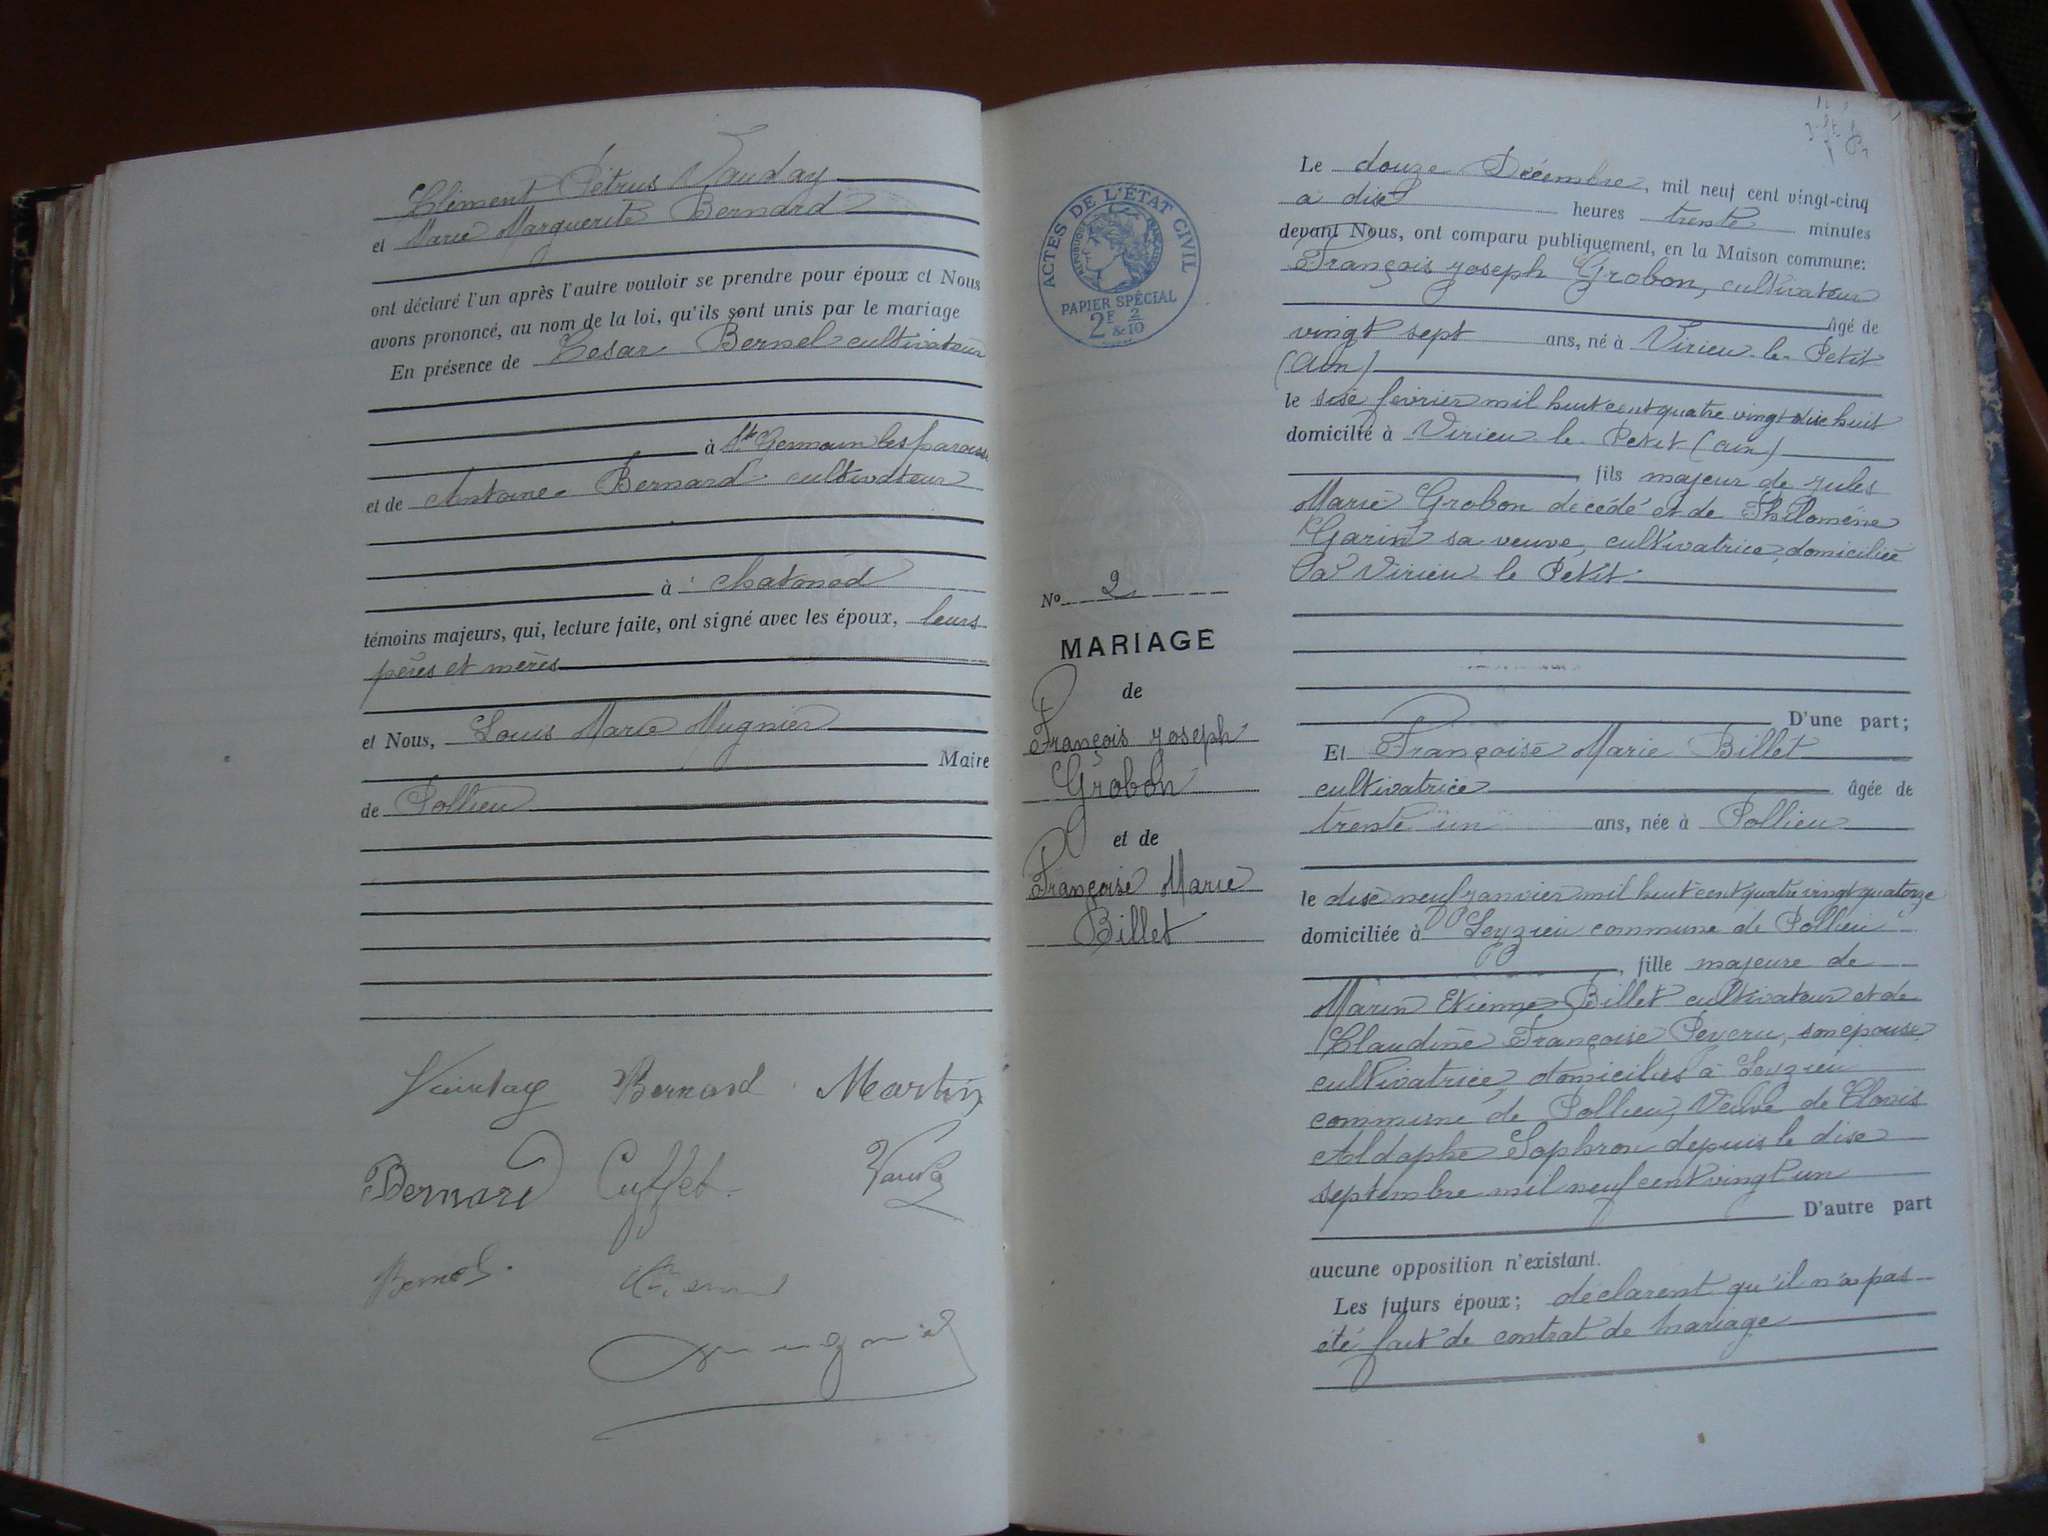 Clément Pétrus Vauday
et Marie Marguerite Bernard
ont déclaré l'un après l'autre vouloir se prendre pour époux et Nous
avons prononcé, au nom de la loi, qu'ils sont unis par le mariage
En présence de Cesar Bernel cultivateur
à St Germain les paroisses
et de Antoine Bernard cultivateur
à chatonod
témoins majeurs, qui, lecture faite, ont signé avec les époux, leurs
pères et mères
et Nous, Louis Marie Mugnier
Maire
de Pollieu
Vauday Bernard Martin
Bernard Cuffet Vauda
Bernel
ACTES DE L'ÉTAT CIVIL
RÉPUBLIQUE
PAPIER SPÉCIAL
2F 2
&10
No 2
MARIAGE
de
François Joseph
Grobon
et de
Françoise Marie
Billet
Le douze Décembre, mil neuf cent vingt-cinq
a dix heures trente minutes
devant Nous, ont comparu publiquement, en la Maison commune:
François Joseph Grobon, cultivateur
âgé de
vingt sept ans, né à Virieu le Petit
(Ain)
le sise février mil huit cent quatre vingt dise huit
domicilié à Virieu le Petit (ain)
, fils majeur de Jules
Marie Grobon decédé et de Philomène
Garin sa veuve, cultivatrice domiciliée
a Virieu le Petit
D'une part;
Et Françoise Marie Billet
cultivatrice âgée de
trente un ans, née à Pollieu
le dise neuf janvier mil huit cent quatre vingt quatorze
domiciliée à Leyzieu commune de Pollieu
, fille majeure de
Marin Etienne Billet cultivateur et de
Claudine Françoise Peycru, son epouse
cultivatrice, domiciliés à Leyzieu
commune de Pollieu, Veuve de Clovis
Aldophe Sophron depuis le dise
septembre mil neuf cent vingt un
D'autre part
aucune opposition n'existant.
Les futurs époux; déclarent qu'il n'a pas
été fait de contrat de mariage